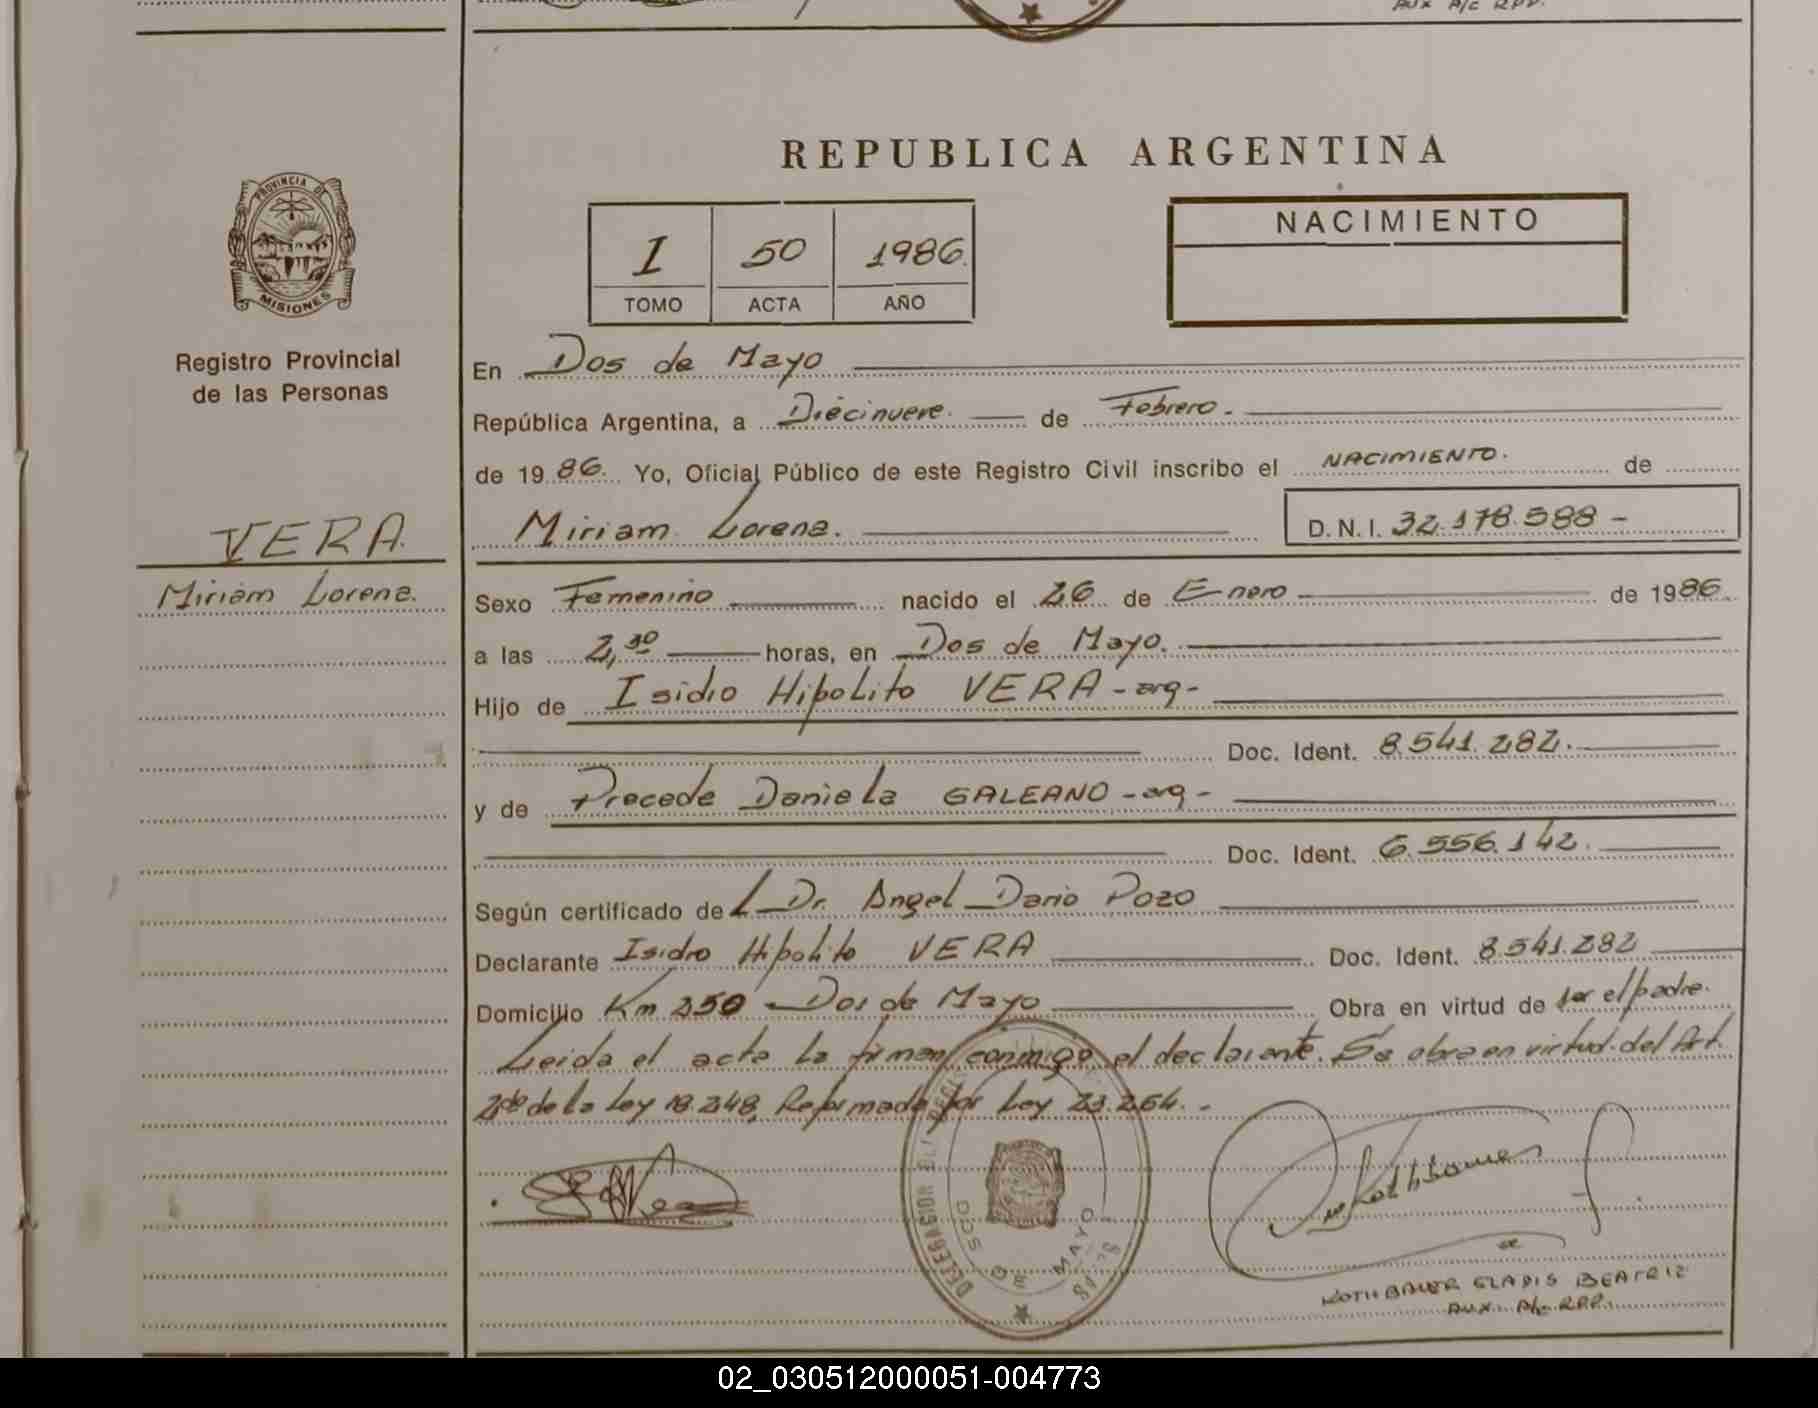 AUX A/c RPP.
REPUBLICA ARGENTINA
PROVINCIA DE
MISIONES
Registro Provincial
de las Personas
I 50 1986.
TOMO ACTA AÑO
NACIMIENTO
En Dos de Mayo
República Argentina, a Diecinueve. de Febrero.
de 19 86. Yo, Oficial Público de este Registro Civil inscribo el NACIMIENTO. de
Miriam Lorena. D.N.I. 32.178.588 -
VERA.
Miriam Lorena.
Sexo Femenino nacido el 26 de Enero de 1986.
a las 2,30 horas, en Dos de Mayo.
Hijo de Isidio Hipolito VERA - arg -
Doc. Ident. 8.541.282.
y de Precede Daniela GALEANO - arg -
Doc. Ident. 6.556.142.
Según certificado de L Dr. Angel Dario Pozo
Declarante Isidro Hipolito VERA Doc. Ident. 8.541.282
Domicilio Km 250 - Dos de Mayo Obra en virtud de ser el padre.
Leida el acta la firman conmigo el declarante. Se obra en virtud del Art.
2do de la Ley 18.248 Reformada por Ley 23.264. -
DELEGACION
DOS DE MAYO
ROTHBAUER GLADIS BEATRIZ
AUX. A/c RPP.
02_030512000051-004773